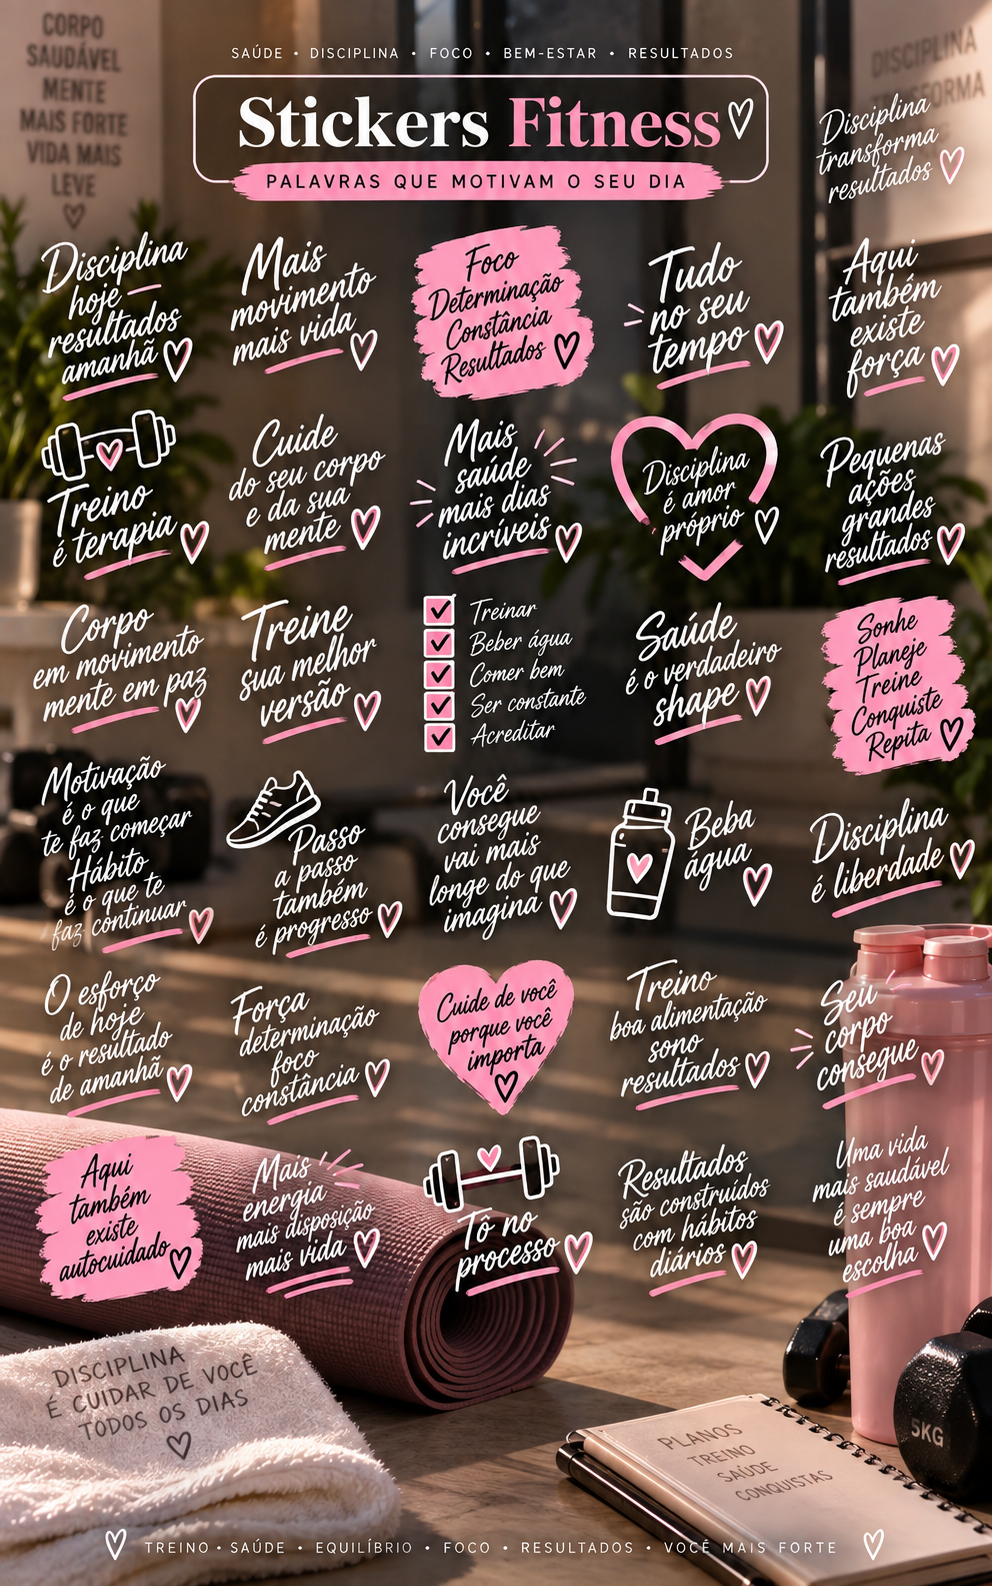 CORPO
SAUDÁVEL
MENTE
MAIS FORTE
VIDA MAIS
LEVE
SAÚDE • DISCIPLINA • FOCO • BEM-ESTAR • RESULTADOS
Stickers Fitness
PALAVRAS QUE MOTIVAM O SEU DIA
DISCIPLINA
TRANSFORMA
Disciplina
transforma
resultados
Disciplina
hoje
resultados
amanhã
Mais
movimento
mais vida
Foco
Determinação
Constância
Resultados
Tudo
no seu
tempo
Aqui
também
existe
força
Treino
é terapia
Cuide
do seu corpo
e da sua
mente
Mais
saúde
mais dias
incríveis
Disciplina
é amor
próprio
Pequenas
ações
grandes
resultados
Corpo
em movimento
mente em paz
Treine
sua melhor
versão
Treinar
Beber água
Comer bem
Ser constante
Acreditar
Saúde
é o verdadeiro
shape
Sonhe
Planeje
Treine
Conquiste
Repita
Motivação
é o que
te faz começar
Hábito
é o que te
faz continuar
Passo
a passo
também
é progresso
Você
consegue
vai mais
longe do que
imagina
Beba
água
Disciplina
é liberdade
O esforço
de hoje
é o resultado
de amanhã
Força
determinação
foco
constância
Cuide de você
porque você
importa
Treino
boa alimentação
sono
resultados
Seu
corpo
consegue
Aqui
também
existe
autocuidado
Mais
energia
mais disposição
mais vida
Tô no
processo
Resultados
são construídos
com hábitos
diários
Uma vida
mais saudável
é sempre
uma boa
escolha
DISCIPLINA
É CUIDAR DE VOCÊ
TODOS OS DIAS
PLANOS
TREINO
SAÚDE
CONQUISTAS
5KG
TREINO • SAÚDE • EQUILÍBRIO • FOCO • RESULTADOS • VOCÊ MAIS FORTE